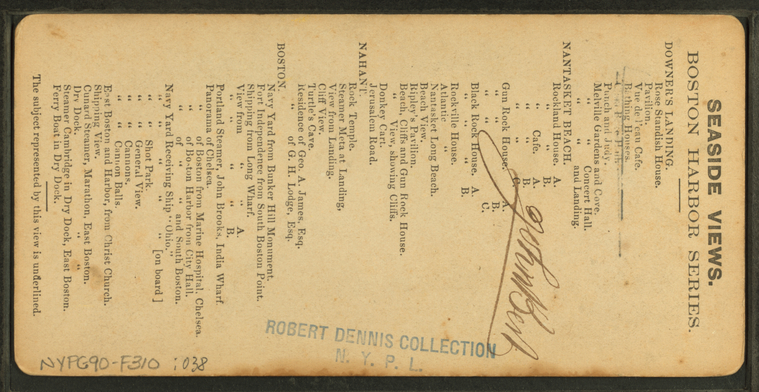 SEASIDE VIEWS.
BOSTON HARBOR SERIES.
DOWNER'S LANDING.
Rose Standish House.
Pavilion.
Vue de l'eau Cafe.
Bathing Houses.
Punch and Judy.
Melville Gardens and Cove.
" " Concert Hall.
" " and Landing.
NANTASKET BEACH.
Rockland House. A.
" " B.
" Cafe. A.
" " B.
Gun Rock House. A.
" " " B.
" " " C.
Black Rock House. A.
" " " B.
Rockville House.
Atlantic "
Nantasket Long Beach.
Beach View.
Ripley's Pavilion.
Beach, Cliffs and Gun Rock House.
" View, showing Cliffs.
Donkey Cart.
Jerusalem Road.
NAHANT.
Rock Temple.
Steamer Meta at Landing.
View from Landing.
Cliff View.
Turtle Cave.
Residence of Geo. A. James, Esq.
" of G. H. Lodge, Esq.
BOSTON.
Navy Yard from Bunker Hill Monument.
Fort Independence from South Boston Point.
Shipping from Long Wharf.
View from " " A.
" " " " B.
Portland Steamer, John Brooks, India Wharf.
Panorama of Chelsea.
" of Boston from Marine Hospital, Chelsea.
" of Boston Harbor from City Hall.
" of " " and South Boston.
Navy Yard Receiving Ship "Ohio."
" " " " " [on board]
" " Shot Park.
" " General View.
" " Cannon.
" " Cannon Balls.
East Boston and Harbor, from Christ Church.
Shipping View.
Cunard Steamer, Marathon, East Boston.
Dry Dock, " "
Steamer Cambridge in Dry Dock, East Boston.
Ferry Boat in Dry Dock.
The subject represented by this view is underlined.
ROBERT DENNIS COLLECTION
N. Y. P. L.
NYPG90-F310 :038